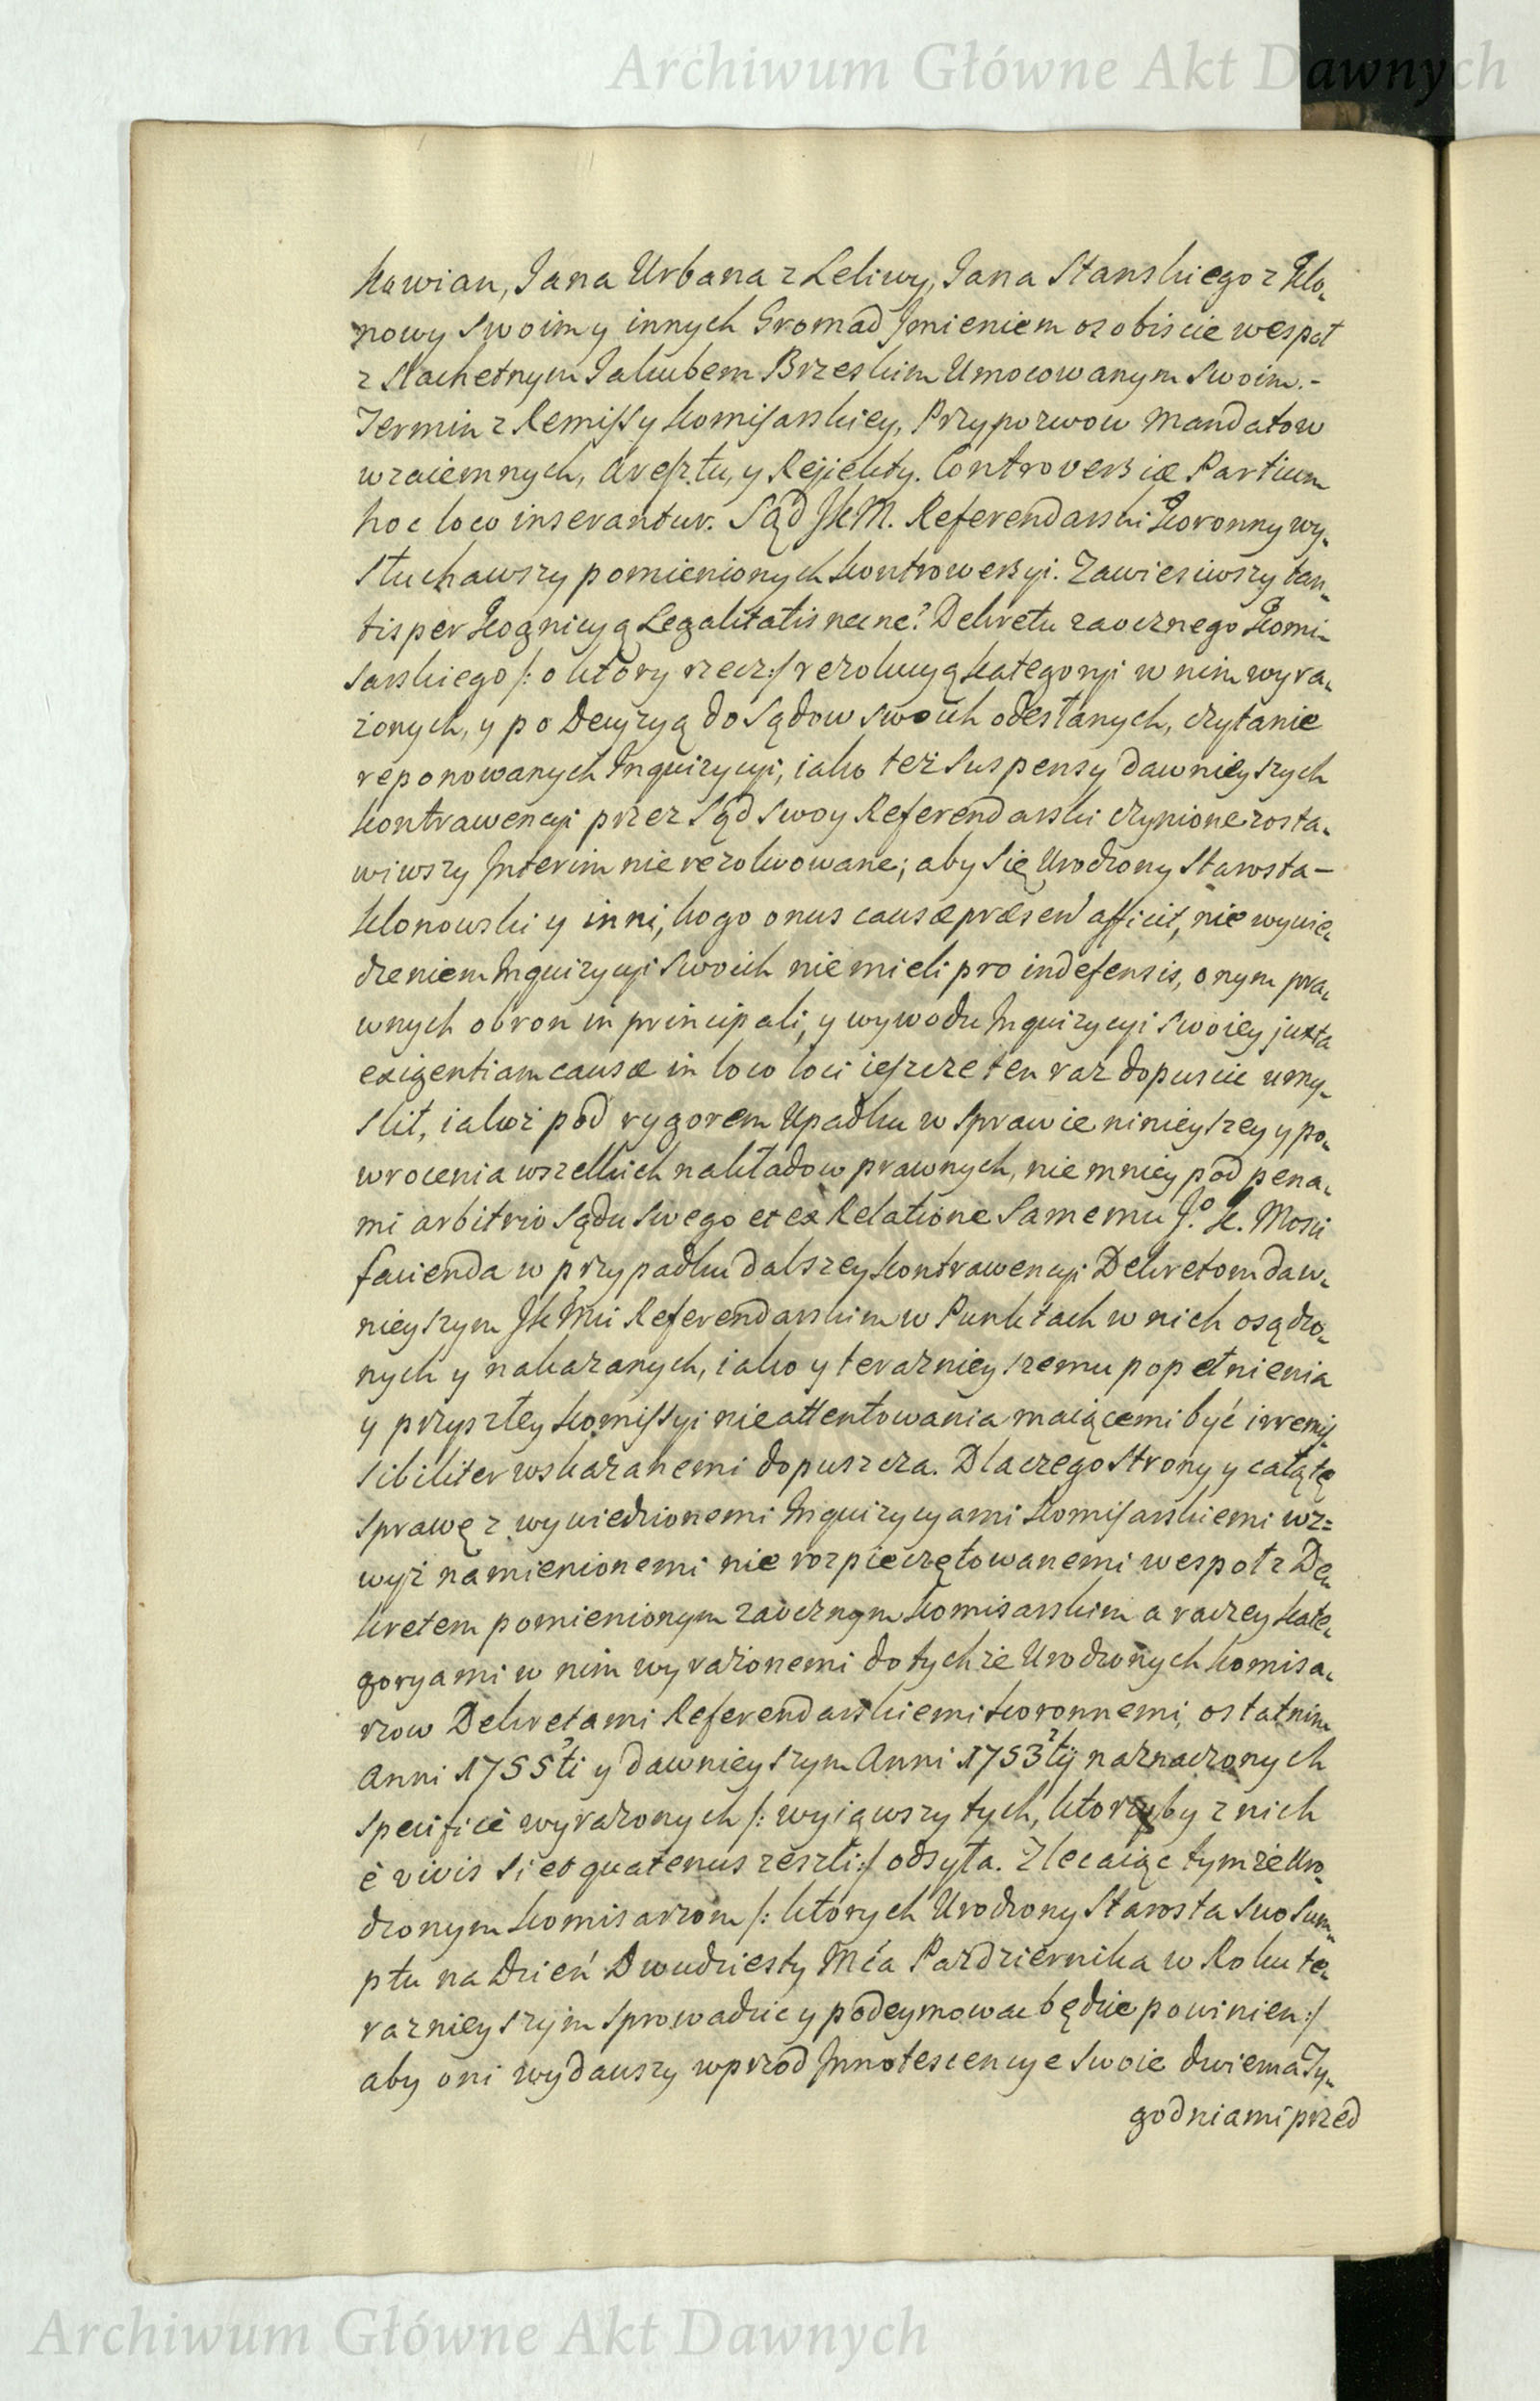 Archiwum Główne Akt Dawnych
kowian, Jana Urbana z Leliwy, Jana Stanskiego z Klo-
nowy Swoim y innych Gromad Jmieniem osobiscie wespoł
z Slachetnym Jakubem Brzeskim Umocowanym Swoim.-
Termin z Remissy Komisarskiey, Przypozwow Mandatow
wzaiemnych, Aresztu, y Rejekty. Controversiæ Partium
hoc loco inserantur. Sąd JKM. Referendarski Koronny wy-
słuchawszy pomienionych Kontrowersyi. Zawiesiwszy tan-
tisper Kognicyą Legalitatis necne? Dekretu zaocznego Komi-
sarskiego /: o ktory rzecz :/ rezolucyą Kategoryi w nim wyra-
żonych, y po Decyzyą do Sądow swoich odesłanych, czytanie
reponowanych Inquizycyi, iako też Suspensy dawnieyszych
Kontrawencyi przez Sąd Swoy Referendarski czynione zosta-
wiwszy Interim nie rezolwowane; aby się Urodzony Starosta-
Klonowski y inni, kogo onus causæ præsen' afficit, nie wywie-
dzeniem Inquizycyi Swoich nie mieli pro indefensis, onym pra-
wnych obron in principali, y wywodu Inquizycyi Swoiey juxta
exigentiam causæ in loco loci ieszcze ten raz dopuscic umy-
slił, iakoż pod rygorem Upadku w Sprawie ninieyszey y po-
wrocenia wszelkich nakładow prawnych, nie mniey pod pena-
mi arbitrio Sądu Swego et ex Relatione Samemu J.o K. Mosci
facienda w przypadku dalszey Kontrawencyi Dekretom daw-
nieyszym JKMci Referendarskim w Punktach w nich osądzo-
nych y nakazanych, iako y teraznieyszemu popełnienia
y przyszłey Komissyi nieattentowania maiącemi być irremis-
sibiliter wskazanemi dopuszcza. Dlaczego Strony y całą tę
Sprawę z wywiedzionemi Inquizycyami Komisarskiemi wz=
wyż namienionemi nie rozpieczętowanemi wespoł z De-
kretem pomienionym zaocznym Komisarskim a raczey Kate-
goryami w nim wyrażonemi do tychże Urodzonych Komisa-
rzow Dekretami Referendarskiemi Koronnemi, ostatnim
Anni 1755ti y dawnieyszym Anni 1753tij naznaczonych
specifice wyrażonych /: wyiąwszy tych, ktorzyby z nich
è vivis si et quatenus zeszli :/ odsyła. Zlecaiąc tymże Uro-
dzonym Komisarzom /: ktorych Urodzony Starosta Suo Sum-
ptu na Dzień Dwudziesty Mca Pazdziernika w Roku te-
raznieyszym sprowadzic y podeymowac będzie powinien :/
aby oni wydawszy wprzod Innotescencye Swoie dwiema Ty-
godniami przed
Archiwum Główne Akt Dawnych